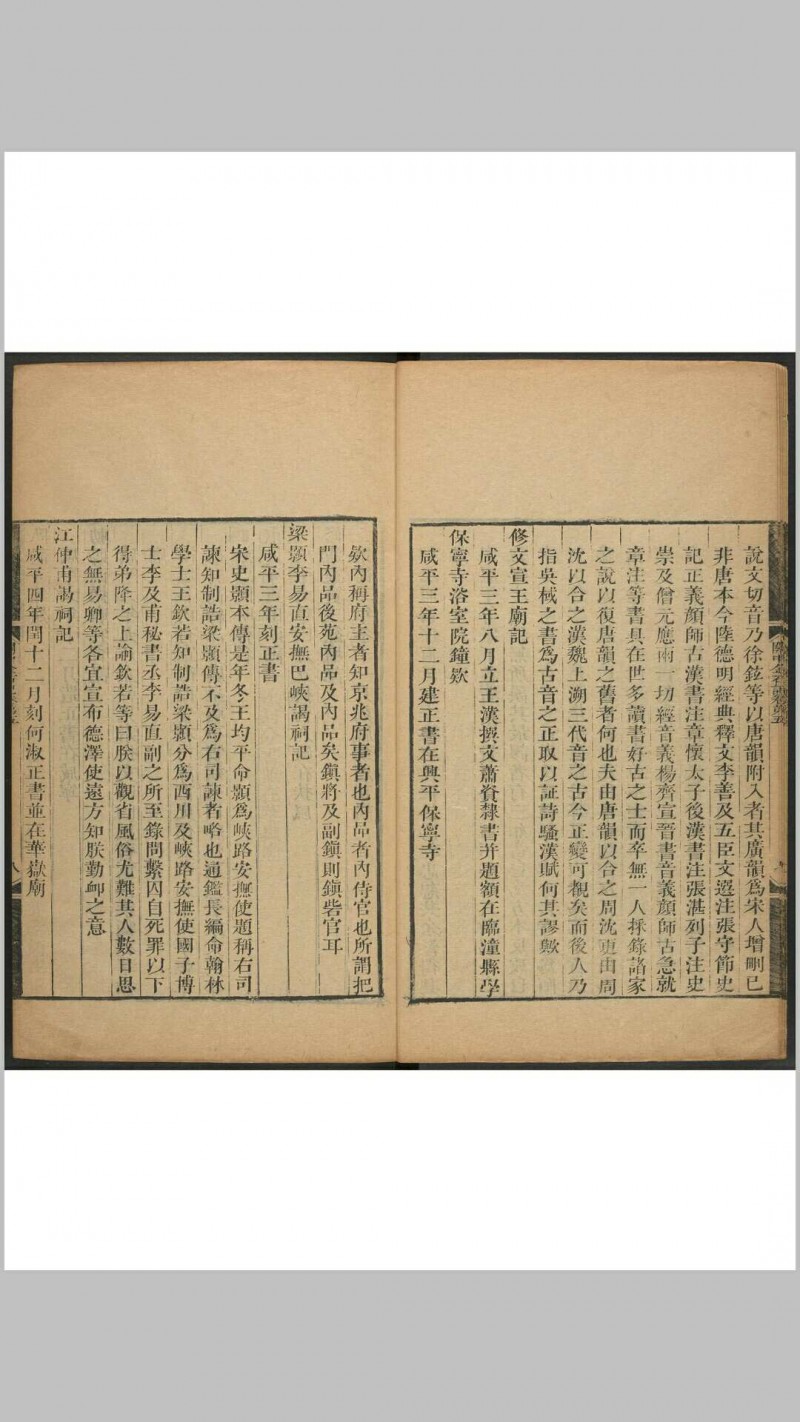 說文切音乃徐鉉等以唐韻附入者其廣韻爲宋人增刪已
非唐本今陸德明經典釋文李善及五臣文選注張守節史
記正義顏師古漢書注章懷太子後漢書注張湛列子注史
崇及僧元應兩一切經音義楊齊宣晉書音義顏師古急就
章注等書具在世多讀書好古之士而卒無一人採錄諸家
之說以復唐韻之舊者何也夫由唐韻以合之周沈更由周
沈以合之漢魏上溯三代音之古今正變可覩矣而後人乃
指吳棫之書爲古音之正取以証詩騷漢賦何其謬歟
修文宣王廟記
咸平三年八月立王漢撰文蕭資隸書并題額在臨潼縣學
保寧寺浴室院鐘欵
咸平三年十二月建正書在興平保寧寺
欵內稱府主者知京兆府事者也內品者內侍官也所謂把
門內品後苑內品及內品矣鎭將及副鎭則鎭砦官耳
梁顥李易直安撫巴峽謁祠記
咸平三年刻正書
宋史顥本傳是年冬王均平命顥爲峽路安撫使題稱右司
諫知制誥梁顥傳不及爲右司諫者略也通鑑長編命翰林
學士王欽若知制誥梁顥分爲西川及峽路安撫使國子博
士李及甫秘書丞李易直副之所至錄問繫囚自死罪以下
得弟降之上諭欽若等曰朕以觀省風俗尤難其人數日思
之無易卿等各宜宣布德澤使遠方知朕勤衈之意
江仲甫謁祠記
咸平四年閏十二月刻何淑正書並在華嶽廟